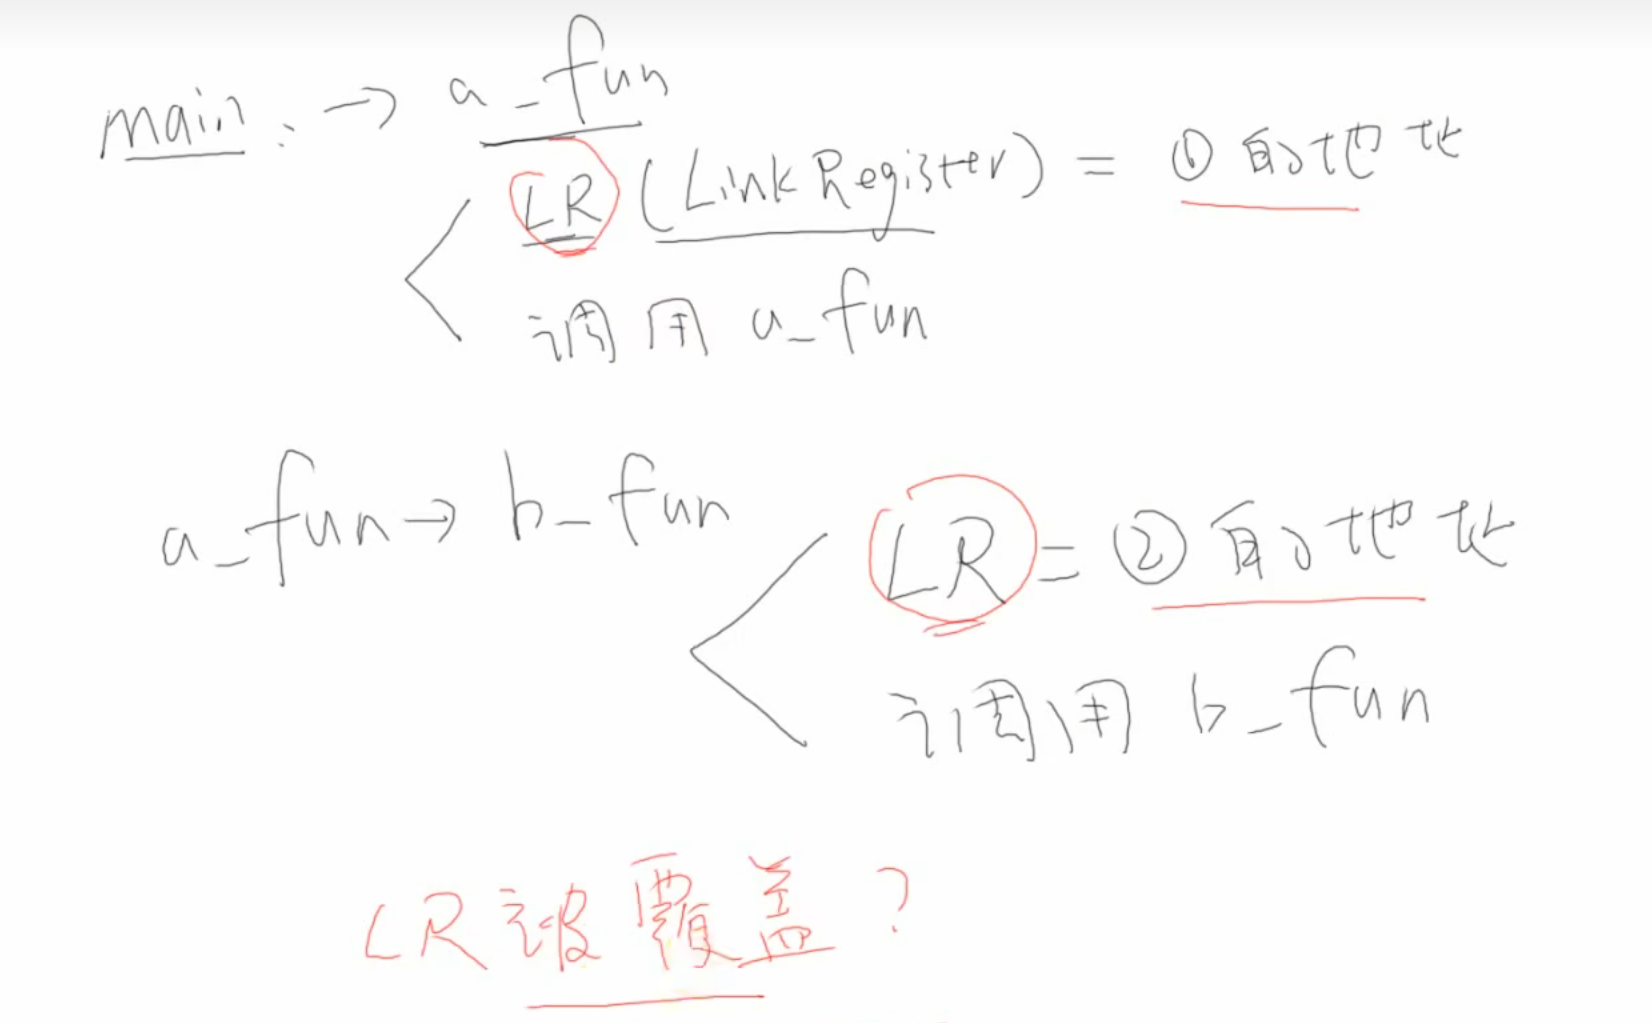 main: → a_fun
LR (Link Register) = ①的地址
调用 a_fun
a_fun → b_fun
LR = ②的地址
调用 b_fun
LR 被覆盖?